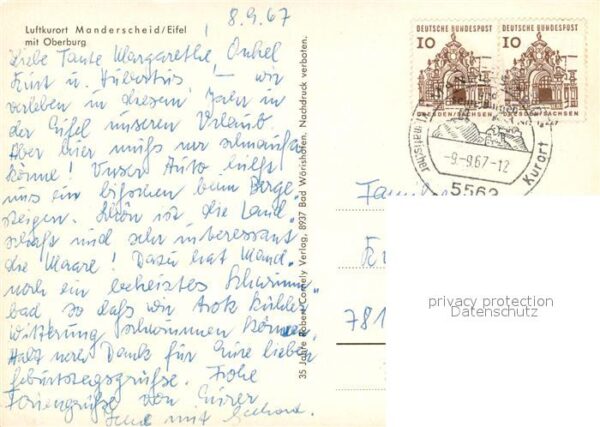 8.9.67
Luftkurort Manderscheid/Eifel
mit Oberburg
Liebe Tante Margarethe, Onkel
Kurt u. Hubertus! – wir
verleben in diesem Jahr in
der Eifel unseren Urlaub
Aber hier muß nur
könne! Unser Auto hilft
uns ein bißchen beim Berge
steigen. Schön ist die Land-
schaft und sehr interessant
die Maare! Dazu hat Mand.
noch ein beheiztes Schwimm-
bad so daß wir trotz kühler
Witterung schwimmen können.
Habt noch Dank für Eure lieben
Geburtstagsgrüße. Frohe
Feriengrüße von Eurer
mit Gerhard.
35 Jahre Robert Cornely Verlag, 8937 Bad Wörishofen. Nachdruck verboten.
DEUTSCHE BUNDESPOST
10
DRESDEN/SACHSEN
DEUTSCHE BUNDESPOST
10
DRESDEN/SACHSEN
-9-9.67-12
Kurort
5562
Famili
781
privacy protection
Datenschutz